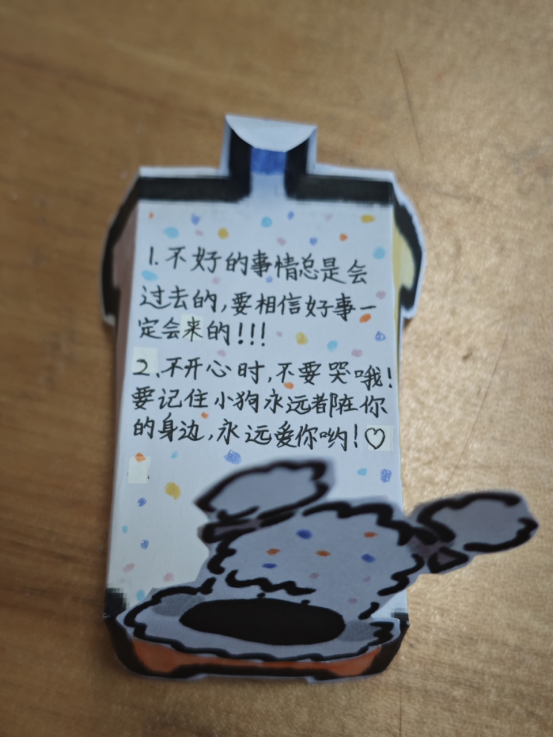 1.不好的事情总是会
过去的,要相信好事一
定会来的!!!
2.不开心时,不要哭哦!
要记住小狗永远都陪你
的身边,永远爱你哟!♡